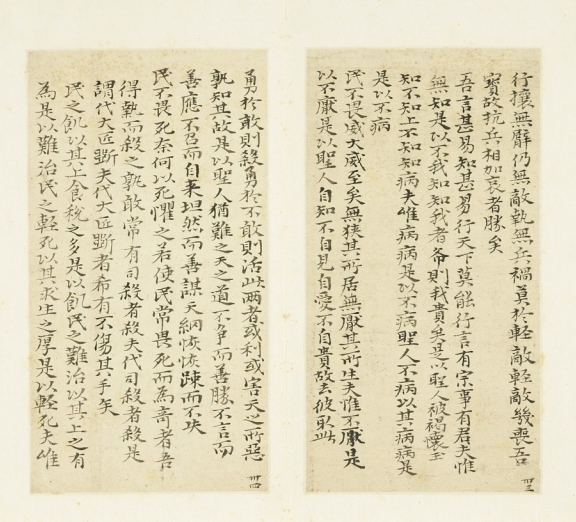 行攘無臂仍無敵執無兵禍莫於輕敵輕敵幾喪吾
寶故抗兵相加哀者勝矣
吾言甚易知甚易行天下莫能行言有宗事有君夫惟
無知是以不我知知我者希則我貴矣是以聖人被褐懷玉
知不知上不知知病夫唯病病是以不病聖人不病以其病病是
是以不病
民不畏威大威至矣無狭其所居無厭其所生夫惟不厭是
以不厭是以聖人自知不自見自愛不自貴故去彼取此
卅三
勇於敢則殺勇於不敢則活此兩者或利或害天之所惡
孰知其故是以聖人猶難之天之道不争而善勝不言而
善應不召而自来坦然而善謀天網恢恢踈而不失
民不畏死奈何以死懼之若使民常畏死而為奇者吾
得執而殺之孰敢常有司殺者殺夫代司殺者殺是
謂代大匠斲夫代大匠斲者希有不傷其手矣
民之飢以其上食稅之多是以飢民之難治以其上之有
為是以難治民之輕死以其求生之厚是以輕死夫唯
卅四